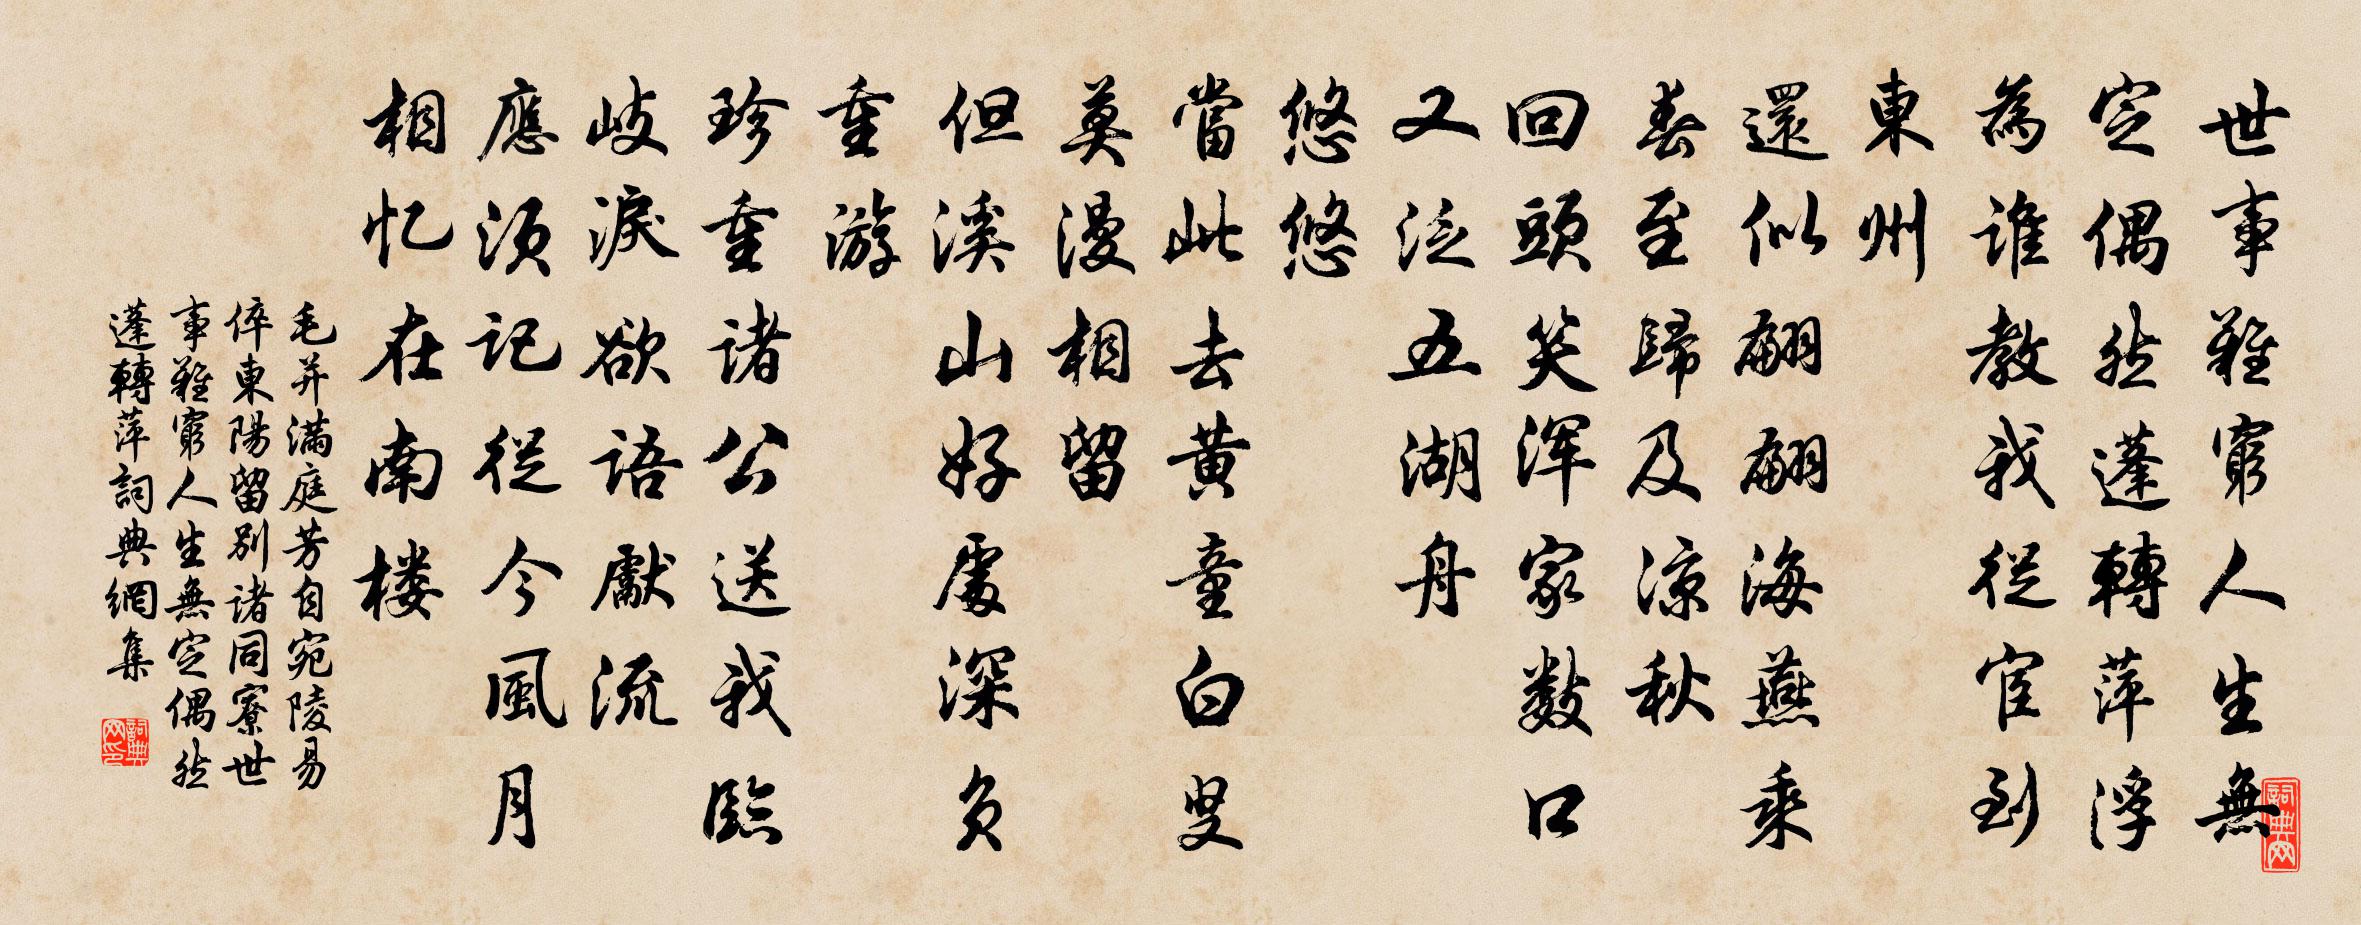 世事難窮人生無
定偶然蓬轉萍浮
為誰教我從宦到
東州
還似翩翩海燕乘
春至歸及涼秋
回頭笑渾家數口
又泛五湖舟
悠悠
當此去黃童白叟
莫漫相留
但溪山好處深負
重游
珍重諸公送我臨
岐淚欲語獻流
應須記從今風月
相忆在南楼
毛并滿庭芳自宛陵易
倅東陽留別諸同寮世
事難窮人生無定偶然
蓬轉萍詞典網集
詞典网
詞典网印